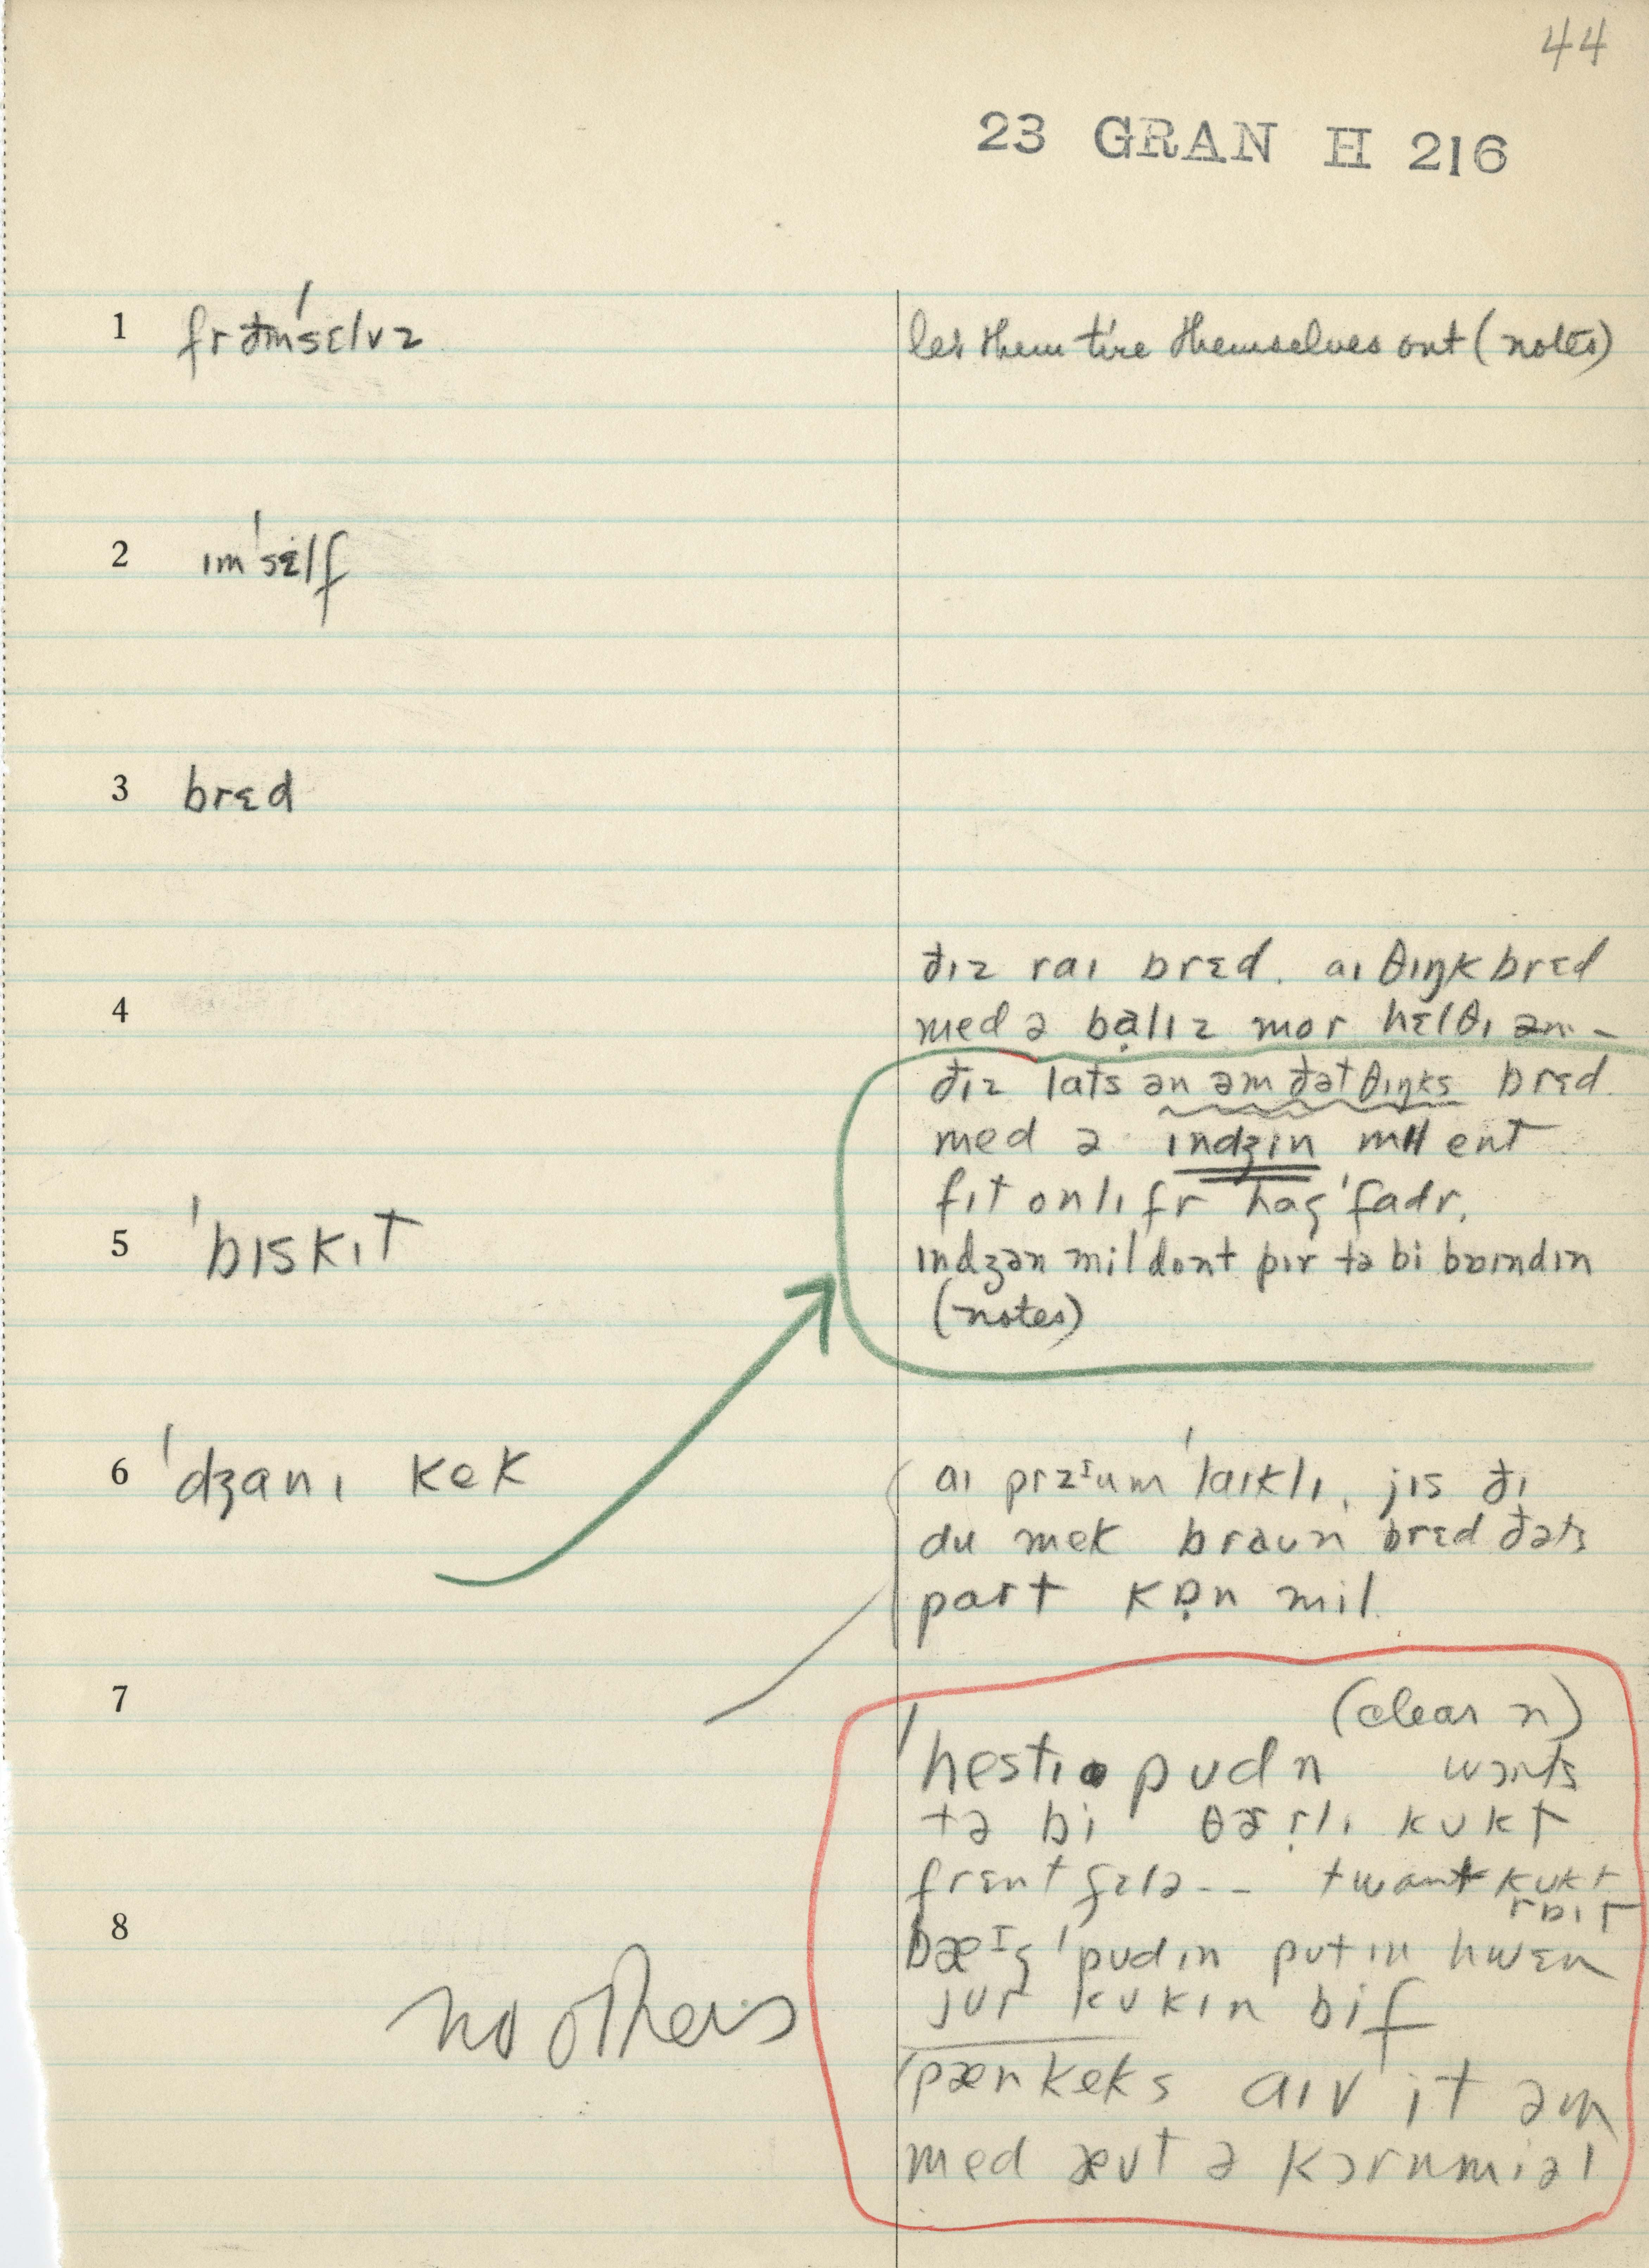 44
23 GRAN H 216
1 fr ðmˈsɛlvz
les them tire themselves out (notes)
2 ɪmˈsɛlf
3 brɛd
4
ðɪz raɪ brɛd. aɪ θɪŋk brɛd
med ə bạlɪz mor hɛlθɪ ən -
ðɪz lats ən əm ðət θɪŋks brɛd
med ə ɪndʒɪn mil ent
fɪt onlɪ fr haɡˈfadr.
ɪndʒən mil dont pɪr tə bi
(notes)
5 ˈbɪskɪt
6 ˈdʒanɪ kek
aɪ przᶦum ˈlaɪklɪ, jɪs ðɪ
du mek braun brɛd ðəts
part kɒ̣n mil
7
(clear n)
ˈhestɪ pʊdn wɔnts
tə bi kʊkt
twant kʊkt
rɒɪt
8
bæᶦɡ ˈpʊdɪn pʊt ɪn hwɛn
jʊr kʊkɪn bif
no others
ˈpænkeks aɪv it əm
med æʊt ə kɔrnmiəl